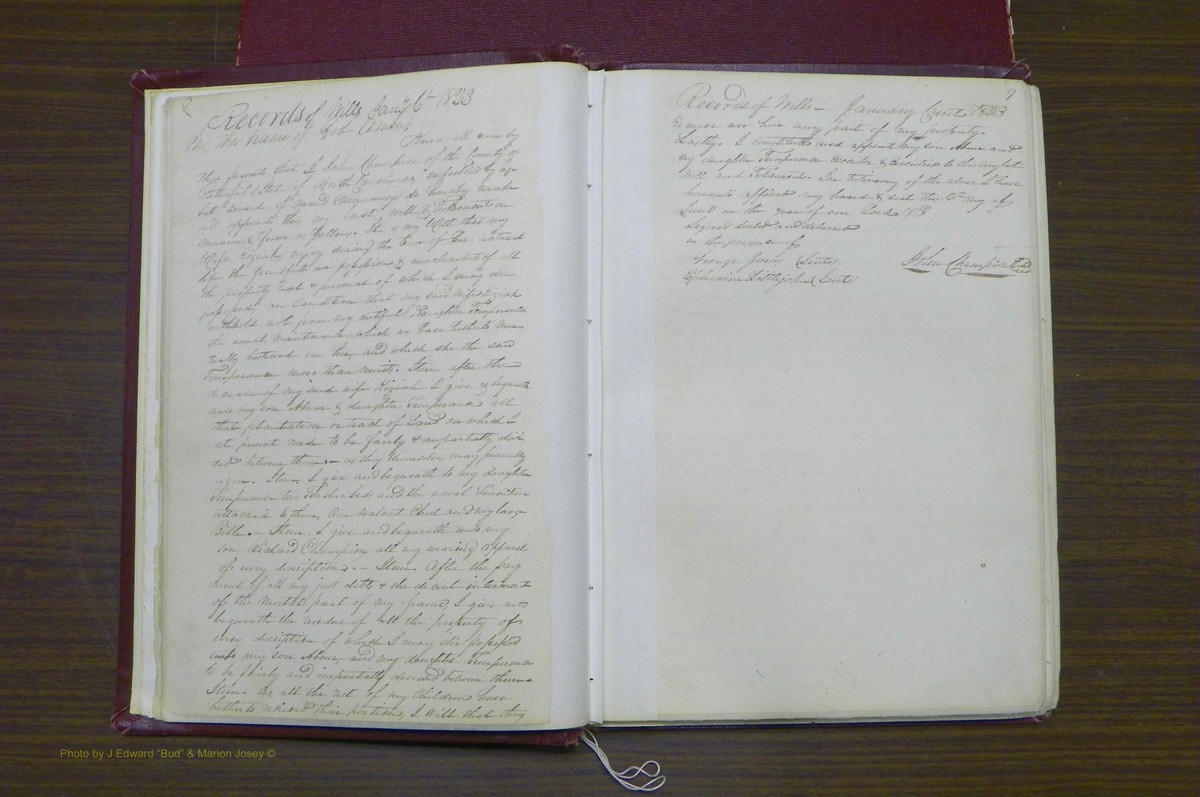 Records of Wills Jany 6th 1823
In the name of God Amen
Know all men by
these presents that I John Champion of the County of
Rutherford & State of North Carolina, infested by age
but sound of mind & memory do hereby make
and appoint this my last Will & Testament in
manner & form as follows. It is my Will that my
Wife Kiziah enjoy during the time of her natural
life the possession & emoluments of all
the property real & personal of which I may die
possessed on condition that my said wife Kiziah
withhold not from my dutiful Daughter Temperance
the usual maintenance which we have hitherto
bestowed on her, and which she the said
Temperance more than merits. Item after the
decease of my said wife Kiziah I give & bequeath
unto my son Abner & daughter Temperance all
that plantation or tract of Land on which I
at present reside to be fairly & impartially divi
ded between them – as they themselves may peaceably
agree. Item. I give and bequeath to my daughter
Temperance two Feather beds and the usual furniture
attached to them, One Walnut Chest and my large
Bible. – Item. I give and bequeath unto my
son Richard Champion all my wearing apparel
of every discription. – Item. After the pay
ment of all my just debts & the decent interment
of the Mortal part of my frame, I give and
bequeath the residue of all the property of
every discription of which I may die possessed
unto my son Abner and my daughter Temperance
to be fairly and impartially divided between them –
Item. As all the rest of my Children have
hitherto received their portions, I will that they
9
Records of Wills – January 1823
Receive nor have any part of my property.
Lastly. I constitute and appoint my son Abner and
my daughter Temperance Executor & Executrix to this my last
Will and Testament. In testimony of the above I have
hereunto affixed my hand & seal this 6th day of
in the year of our Lord
Signed sealed and delivered
in the presence of
George
John Champion
Ephraim Littlejohn
Photo by J Edward "Bud" & Marion Josey ©